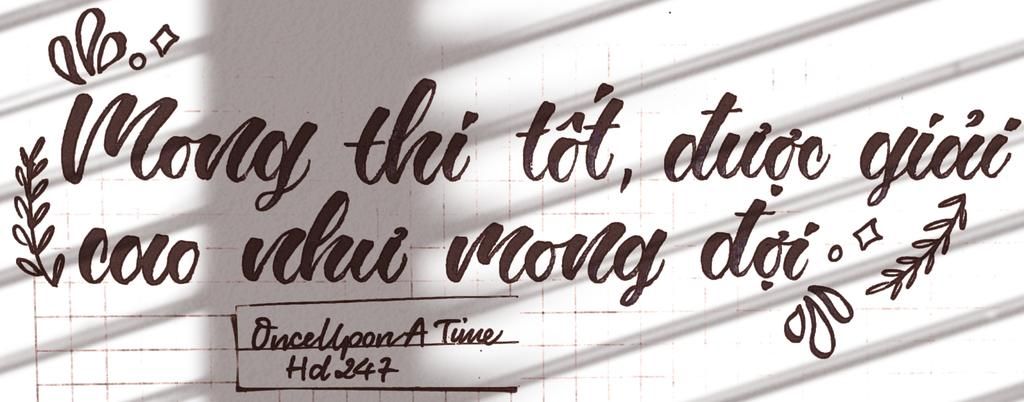 Mong thi tốt, được giải
cao như mong đợi.
OnceUpon A Time
Hd 247